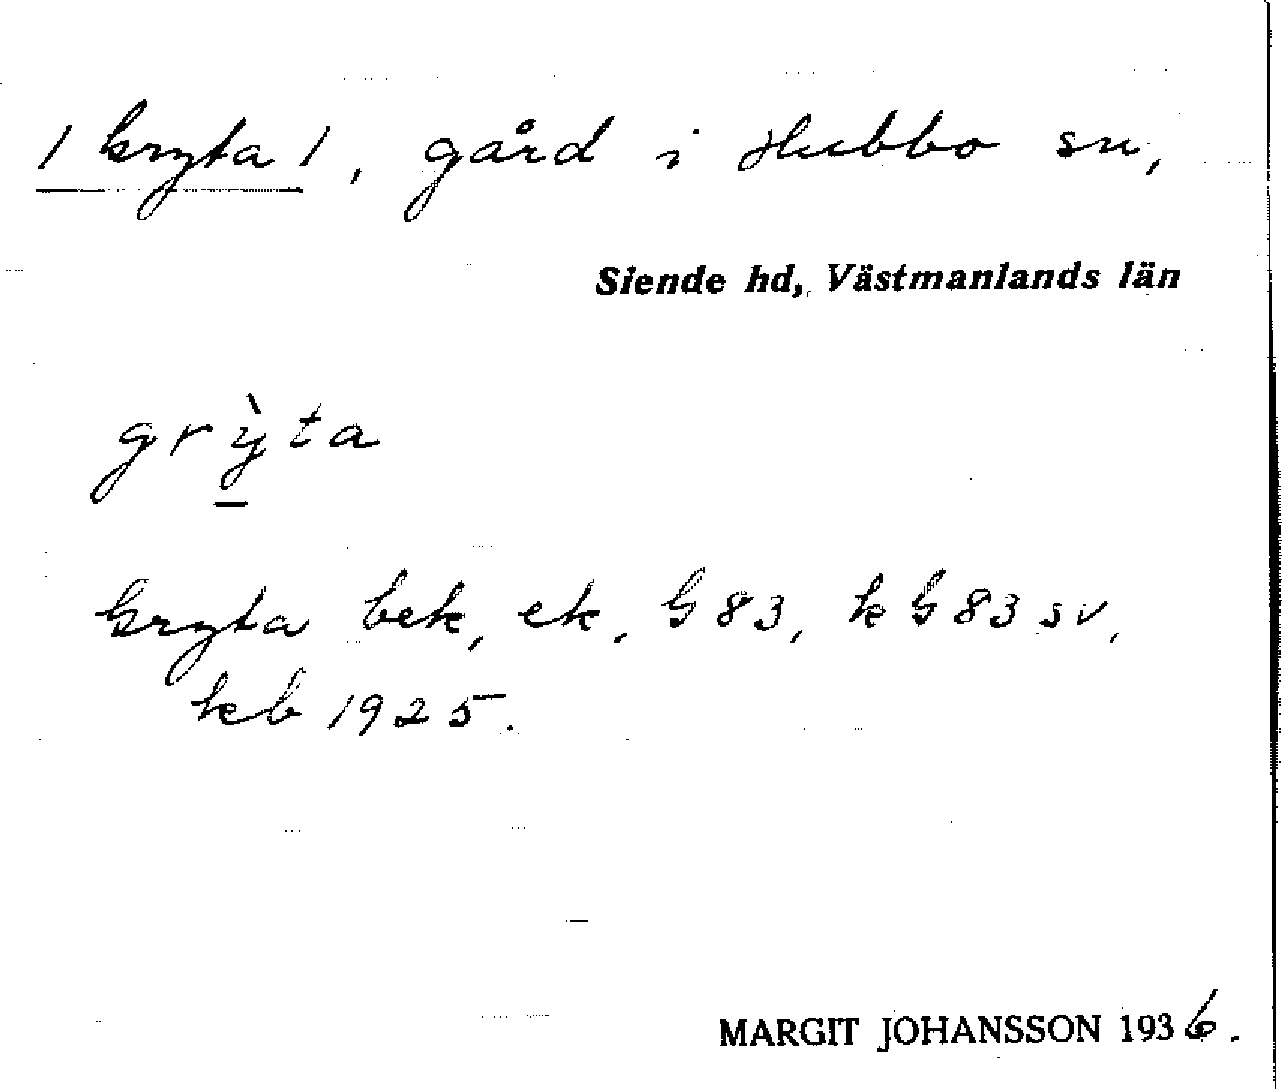 /Gryta/, gård i Hubbo sn,
Siende hd, Västmanlands län
grỳta
Gryta bek, ek, G83, kG83sv,
kb 1925.
MARGIT JOHANSSON 1936.